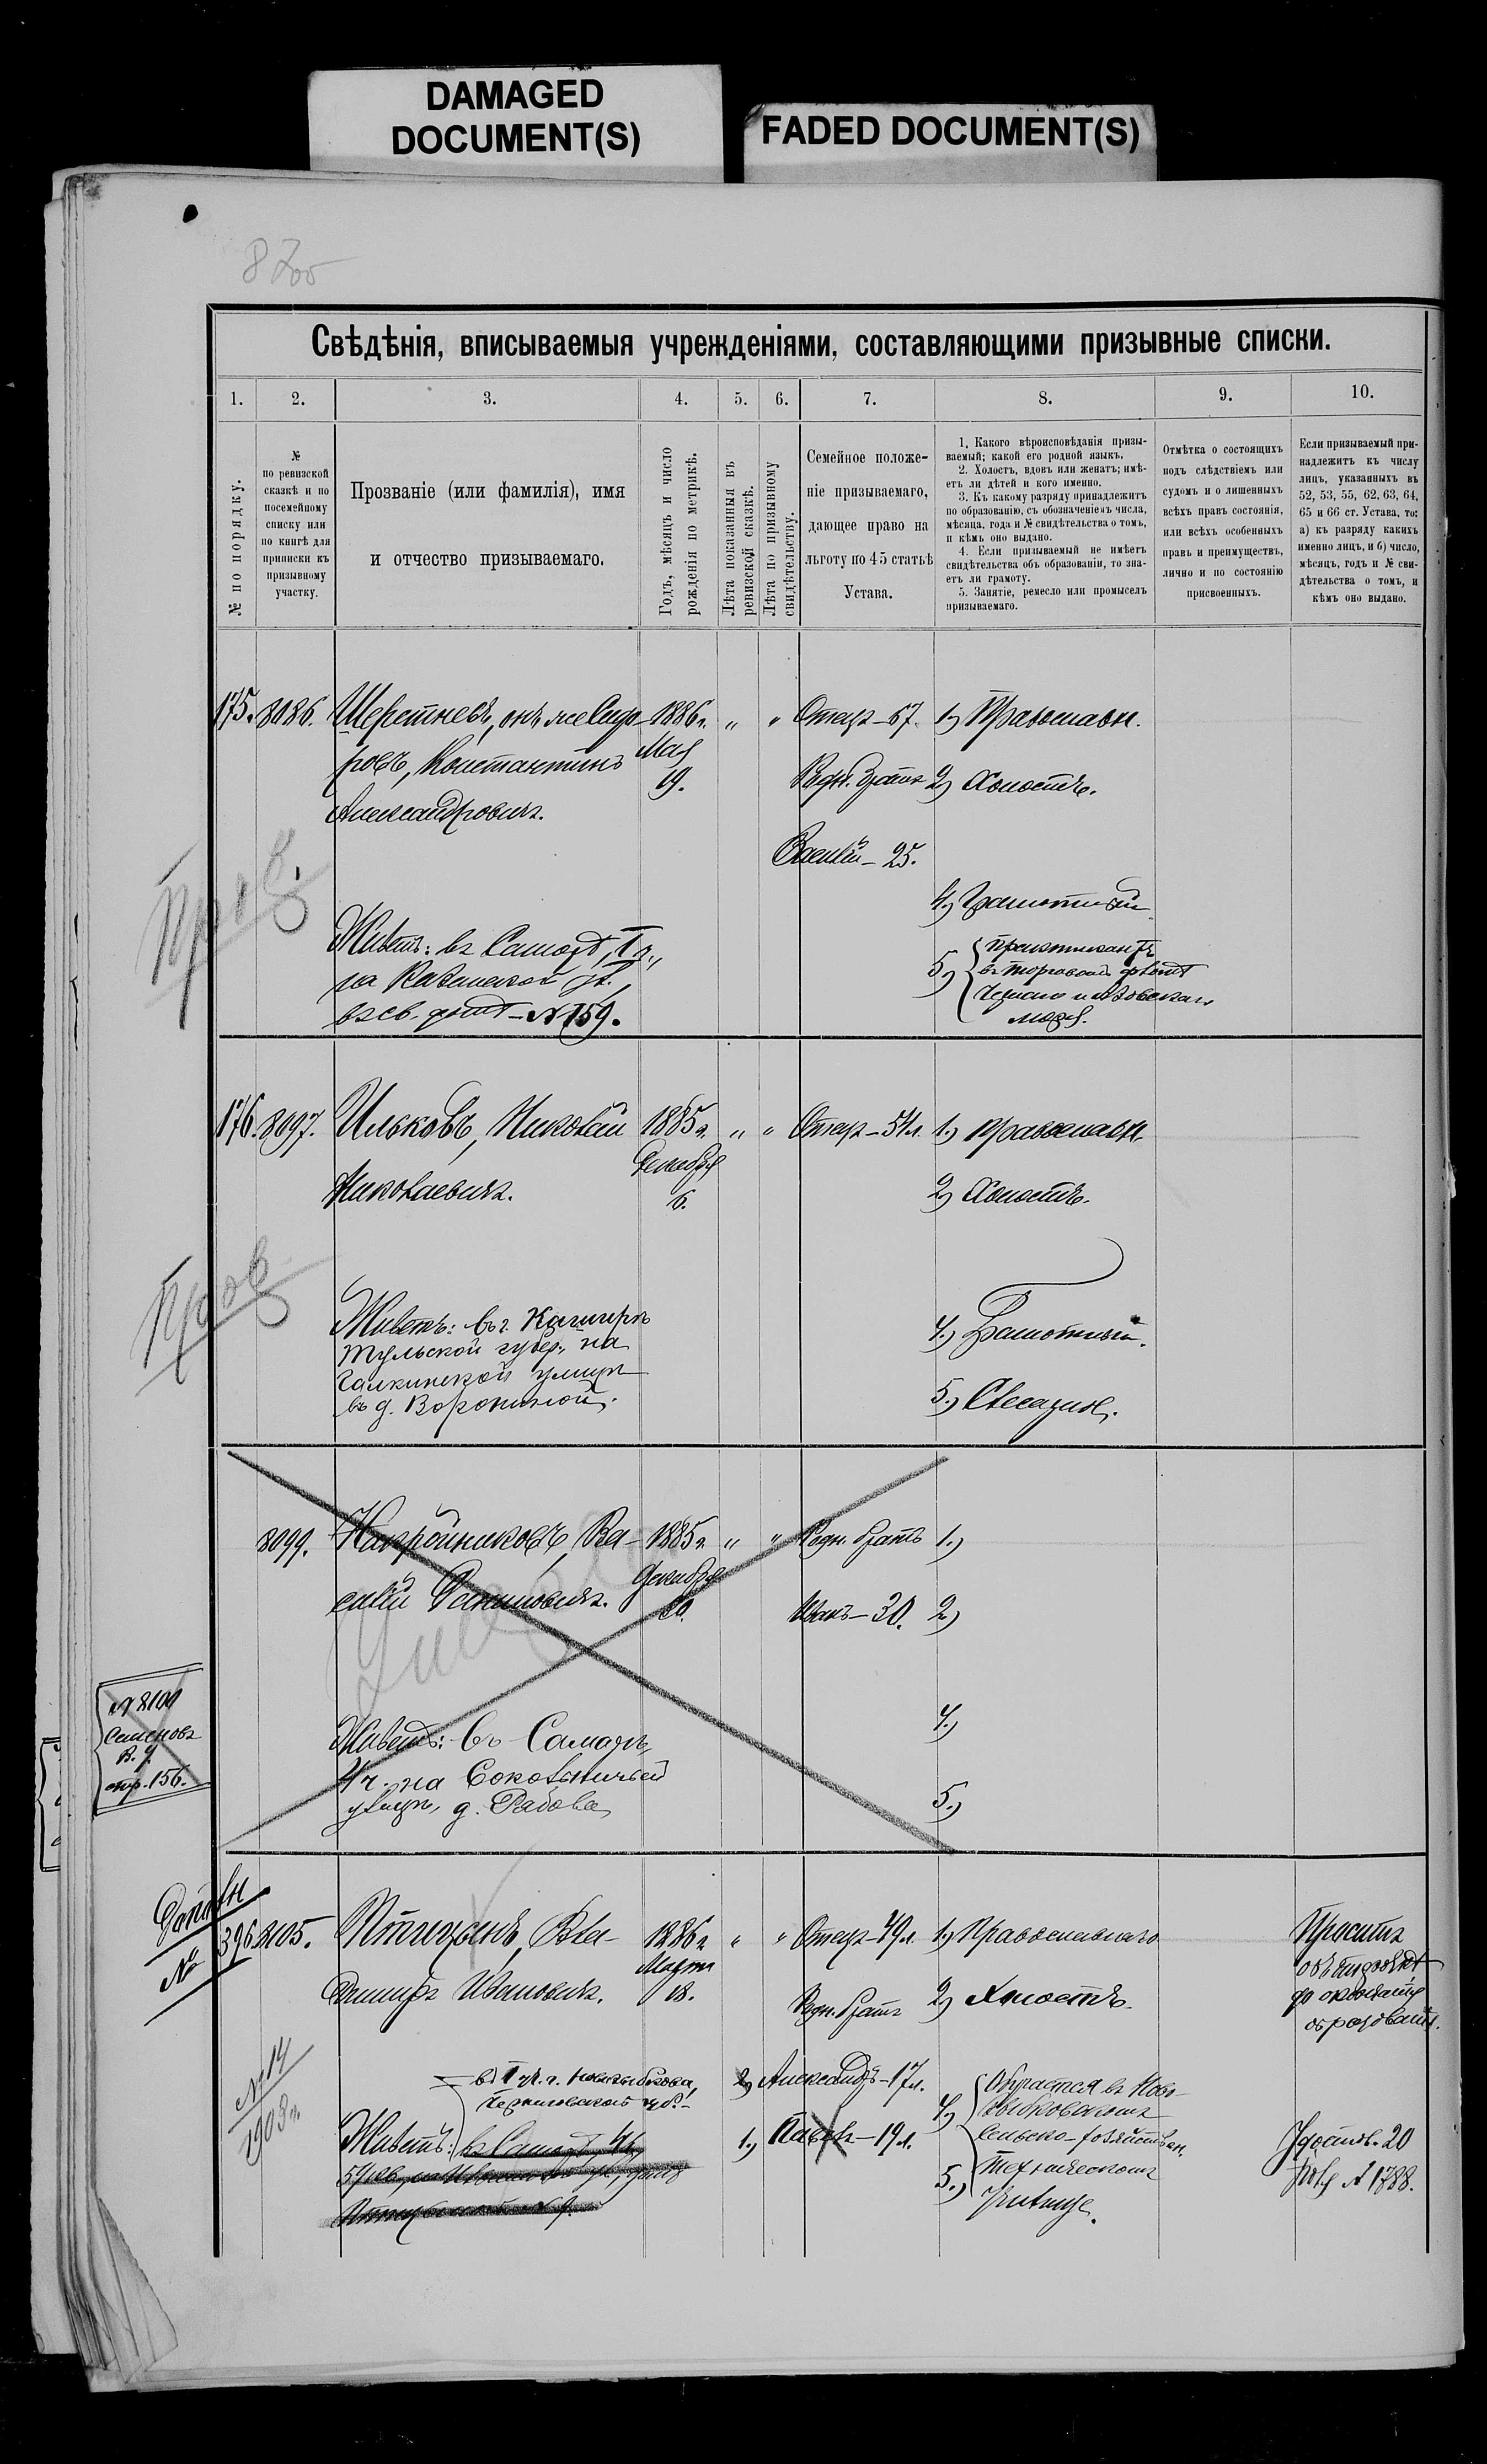 DAMAGED
DOCUMENT(S)
FADED DOCUMENT(S)
Свѣдѣнія, вписываемыя учрежденіями, составляющими призывные списки.
1. 2. 3. 4. 5. 6. 7. 8. 9. 10.
№ по порядку.
№
по ревизской
сказкѣ и по
посемейному
списку или
по книгѣ для
приписки къ
призывному
участку.
Прозваніе (или фамилія), имя
и отчество призываемаго.
Годъ, мѣсяцъ и число
рожденія по метрикѣ.
Лѣта показанныя въ
ревизской сказкѣ.
Лѣта по призывному
свидѣтельству.
Семейное положе-
ніе призываемаго,
дающее право на
льготу по 45 статьѣ
Устава.
1. Какого вѣроисповѣданія призы-
ваемый; какой его родной языкъ.
2. Холостъ, вдовъ или женатъ; имѣ-
етъ ли дѣтей и кого именно.
3. Къ какому разряду принадлежитъ
по образованію, съ обозначеніемъ числа,
мѣсяца, года и № свидѣтельства о томъ,
и кѣмъ оно выдано.
4. Если призываемый не имѣетъ
свидѣтельства объ образованіи, то зна-
етъ ли грамоту.
5. Занятіе, ремесло или промыселъ
призываемаго.
Отмѣтка о состоящихъ
подъ слѣдствіемъ или
судомъ и о лишенныхъ
всѣхъ правъ состоянія,
или всѣхъ особенныхъ
правъ и преимуществъ,
лично и по состоянію
присвоенныхъ.
Если призываемый при-
надлежитъ къ числу
лицъ, указанныхъ въ
52, 53, 55, 62, 63, 64,
65 и 66 ст. Устава, то:
а) къ разряду какихъ
именно лицъ, и б) число,
мѣсяцъ, годъ и № сви-
дѣтельства о томъ, и
кѣмъ оно выдано.
175. 8086. Шеретневъ, онъ же Сидо- 1886 г. " " Отецъ – 67. 1) Православн.
ровъ, Константинъ Мая
19.
Александровичъ.
Родн. братъ 2) Холостъ.
Василій – 25.
4) Грамотный
Живетъ: въ Самарѣ, I ч.,
на Казанской ул.
въ св. домѣ – № 159.
5)
въ торговомъ флотѣ
Чернаго и Азовскаго
моря.
176. 8097. Ильковъ, Николай 1885 г. " " Отецъ – 54 л. 1) Православн.
Николаевичъ. Декабря
6.
2) Холостъ.
Живетъ: въ г. Каширѣ
Тульской губер., на
Галкинской улицѣ
въ д. Ворониной.
4) Грамотный.
5) Слесарь.
8099. Накройниковъ, Ва- 1885 г. " " Родн. братъ 1)
силій Декабря
Иванъ – 30. 2)
Живетъ: въ Самарѣ,
4 ч. на Сокольничьей
улицѣ, д.
4)
5)
№ 8100
Семеновъ
В. У.
стр. 156.
№ 396 8105. Птицынъ, Вла- 1886 г. " " Отецъ – 49 л. 1) Православнаго
димиръ Ивановичъ. Марта
18.
Родн. братъ 2) Холостъ.
Проситъ
объ отсрочкѣ
до окончанія
образованія.
№ 14
1903 г.
въ I уч. г. Новозыбкова,
Черниговской губ.
Живетъ: въ Самарѣ, 4 ч.
2) Александръ – 17 л.
1) Павелъ – 19 л.
4) Обучается въ Ново-
зыбковскомъ
сельско-хозяйствен.
5) техническомъ
училищѣ.
Удостов. 20
№ 1788.